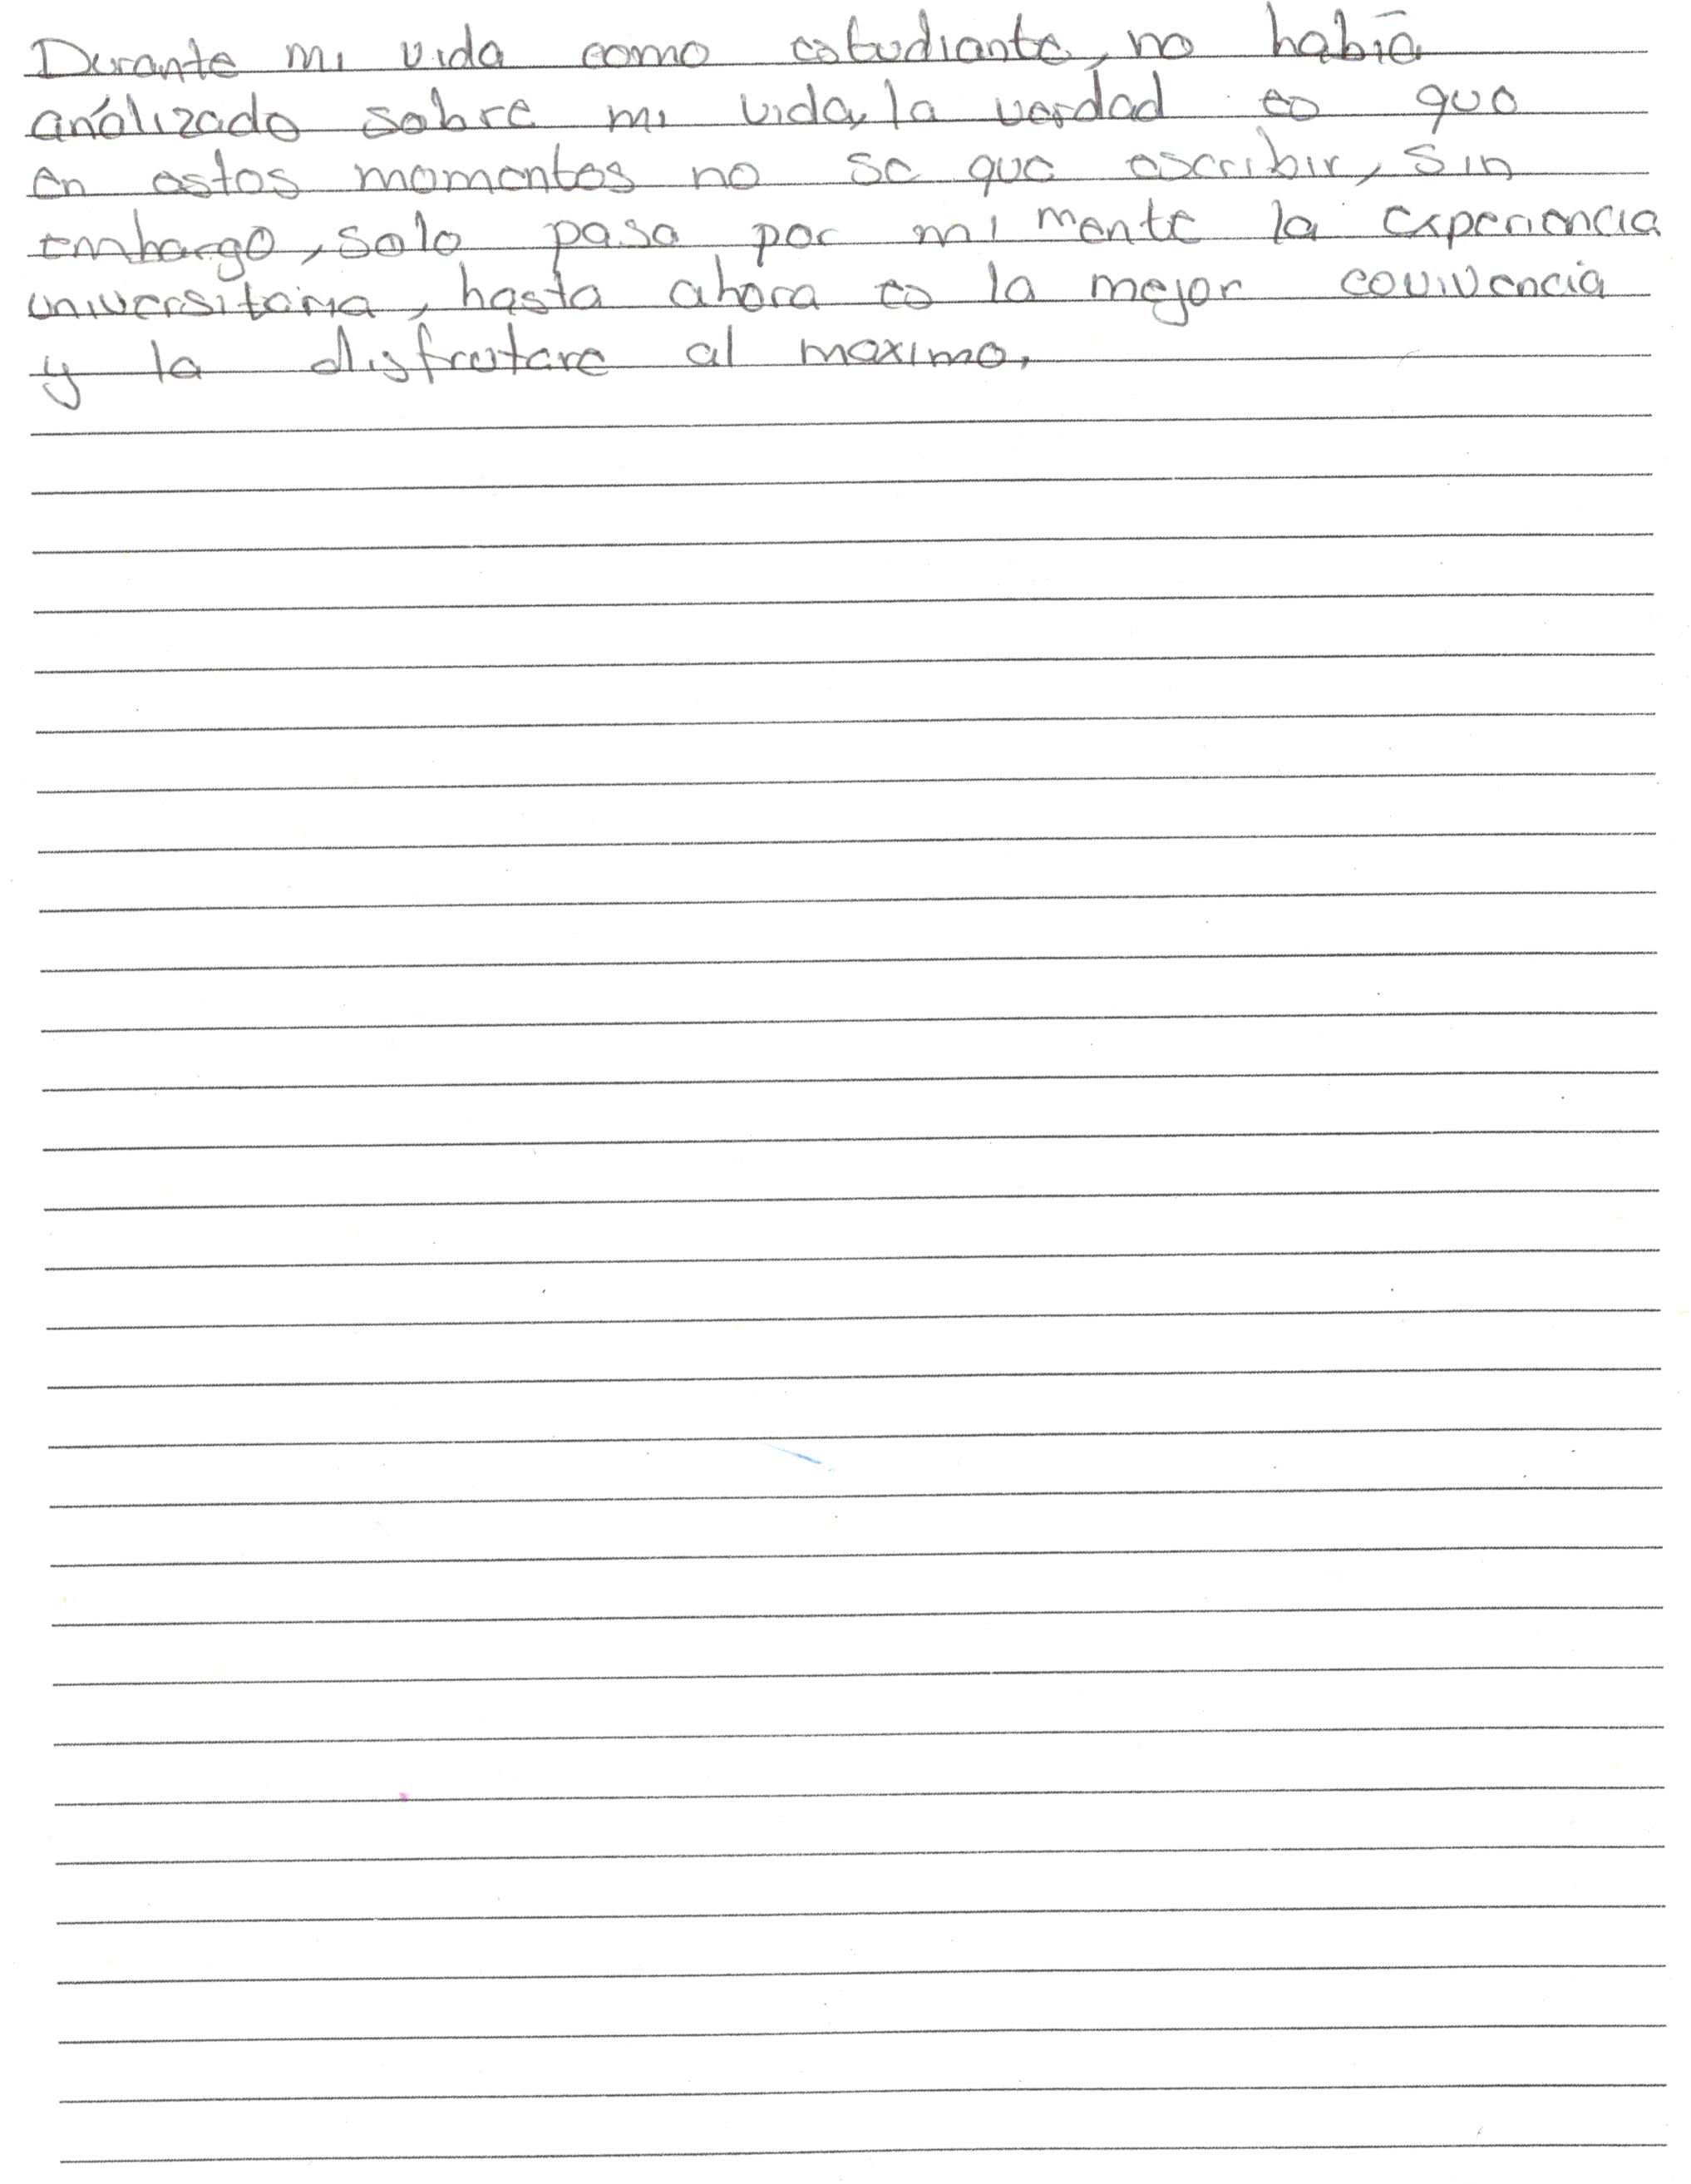 Durante mi vida como estudiante, no había
análizado sobre mi vida, la verdad es que
en estos momentos no se que escribir, sin
embargo, solo pasa por mi mente la experiencia
universitaria, hasta ahora es la mejor covivencia
y la disfrutare al maximo.